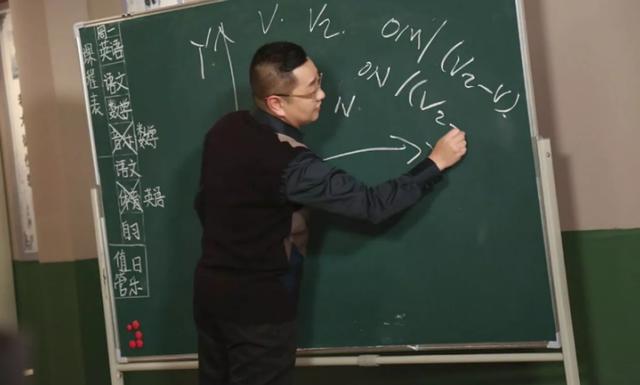 课程表
周二
英语
语文
数学
数学
语文
体育 英语
自习
值日
管乐
Y
V. V2.
OM/(V2-V).
ON/(V2-
N.